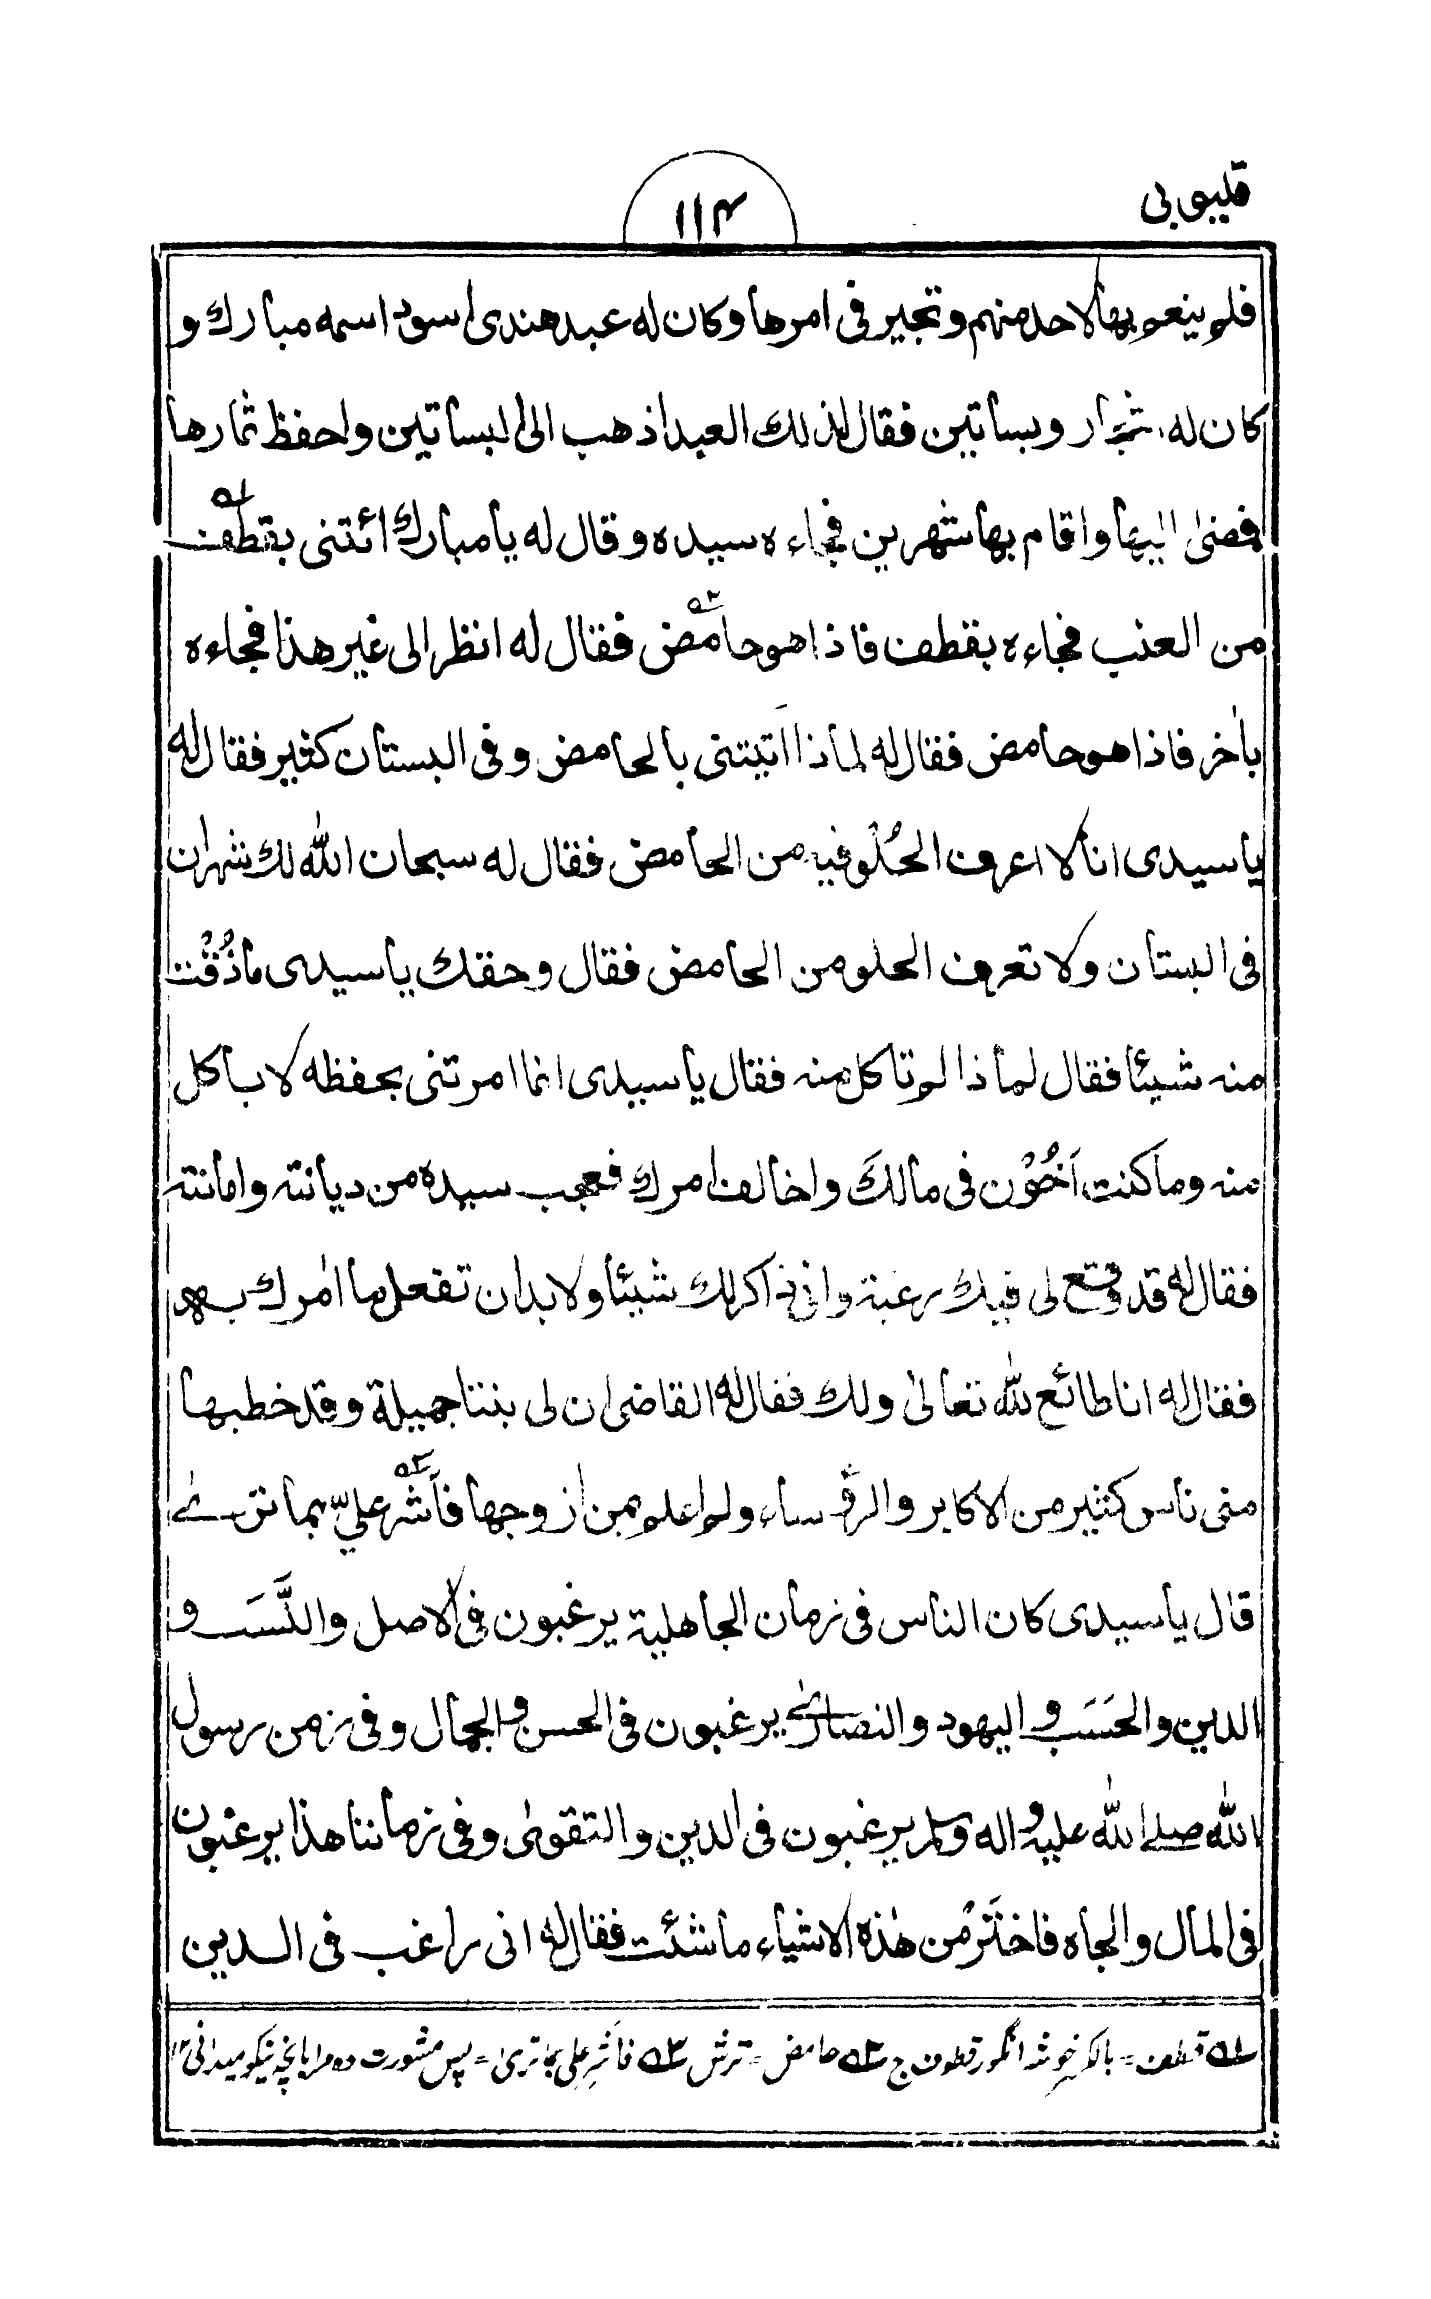 قليوبي
١١٤
فلم ينعم بها لاحد منهم وتحير في امرها وكان له عبد هندى اسود اسمه مبارك و
كان له اشجار وبساتين فقال لذلك العبد اذهب الى البساتين واحفظ ثمارها
فمضىٰ اليها واقام بها شهرين فجاءه سيده وقال له يا مبارك ائتنى بقطف ؎۱
من العنب فجاءه بقطف فاذا هو حامض ؎۲ فقال له انظر الى غير هذا فجاءه
بأٰخر فاذا هو حامض فقال له لماذا اتيتنى بالحامض وفى البستان كثير فقال له
يا سيدى انا لا اعرف الحُلْو فيه من الحامض فقال له سبحان الله لك شهران
فى البستان ولا تعرف الحلو من الحامض فقال وحقك يا سيدى ما ذُقْتُ
منه شيئا فقال لماذا لم تاكل منه فقال يا سيدى انما امرتنى بحفظه لا باكل
منه وما كنت اَخُوْن فى مالكَ واخالف امرك فعجب سيده من ديانته وامانته
فقال له قد وقع لى فيك رغبة وانى ذاكر لك شيئا ولا بد ان تفعل ما اٰمرك به
فقال له انا طائع لله تعالىٰ ولك فقال له القاضى ان لى بنتا جميلة وقد خطبها
منى ناس كثير من الاكابر والرؤساء ولم اعلم بمن ازوجها فاَشْر ؎۳ عليّ بما ترىٰ
قال يا سيدى كان الناس فى زمان الجاهلية يرغبون فى الاصل والنَّسَب و
الدين والحَسَب واليهود والنصارىٰ يرغبون فى الحسن والجمال وفى زمن رسول
الله صلى الله عليه واله وسلم يرغبون فى الدين والتقوىٰ وفى زماننا هذا يرغبون
فى المال والجاه فاختَرْ من هٰذه الاشياء ما شئت فقال له انى راغب فى الدين
؎۱ قطف = بالكسر خوشه انگور قطوف ج ؎۲ حامض = ترش ؎۳ فاَشْرِ على بما ترىٰ = پس مشورت ده مرا بانچه نيكو ميدانى ۱۲